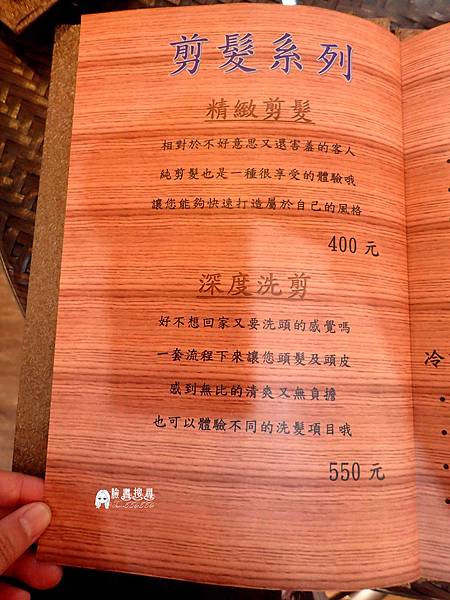 剪髮系列
精緻剪髮
相對於不好意思又還害羞的客人
純剪髮也是一種很享受的體驗哦
讓您能夠快速打造屬於自己的風格
400 元
深度洗剪
好不想回家又要洗頭的感覺嗎
一套流程下來讓您頭髮及頭皮
感到無比的清爽又無負擔
也可以體驗不同的洗髮項目哦
550 元
冷